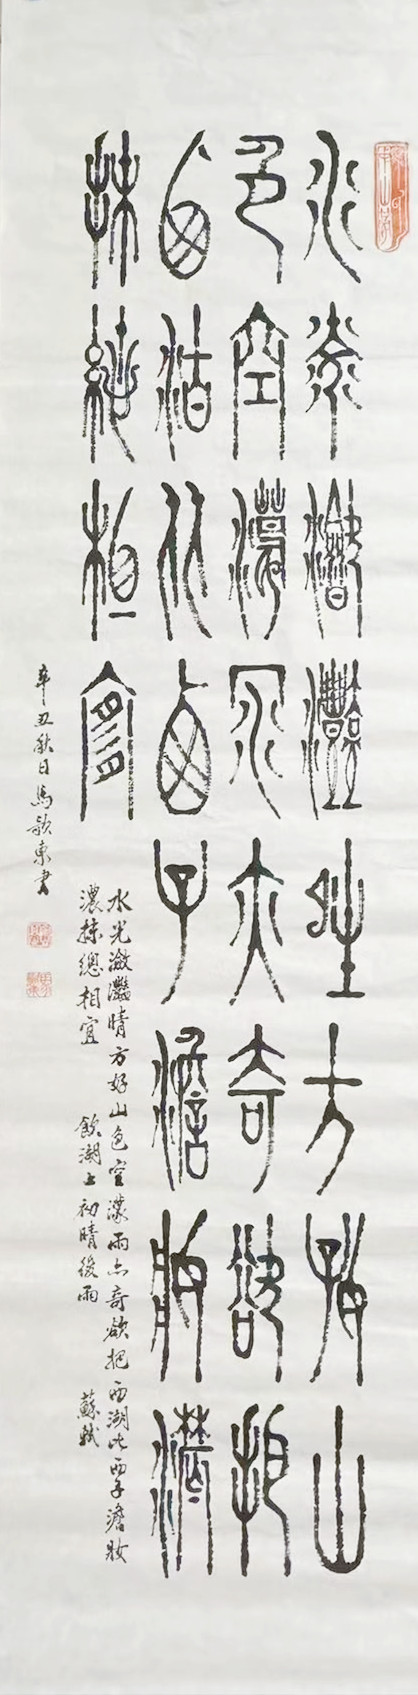 水光瀲灩晴方好山
色空濛雨亦奇欲把
西湖比西子澹妝濃
抹總相宜
水光瀲灩晴方好山色空濛雨亦奇欲把西湖比西子澹妝
濃抹總相宜 飲湖上初晴後雨 蘇軾
辛丑秋日馬歌東書